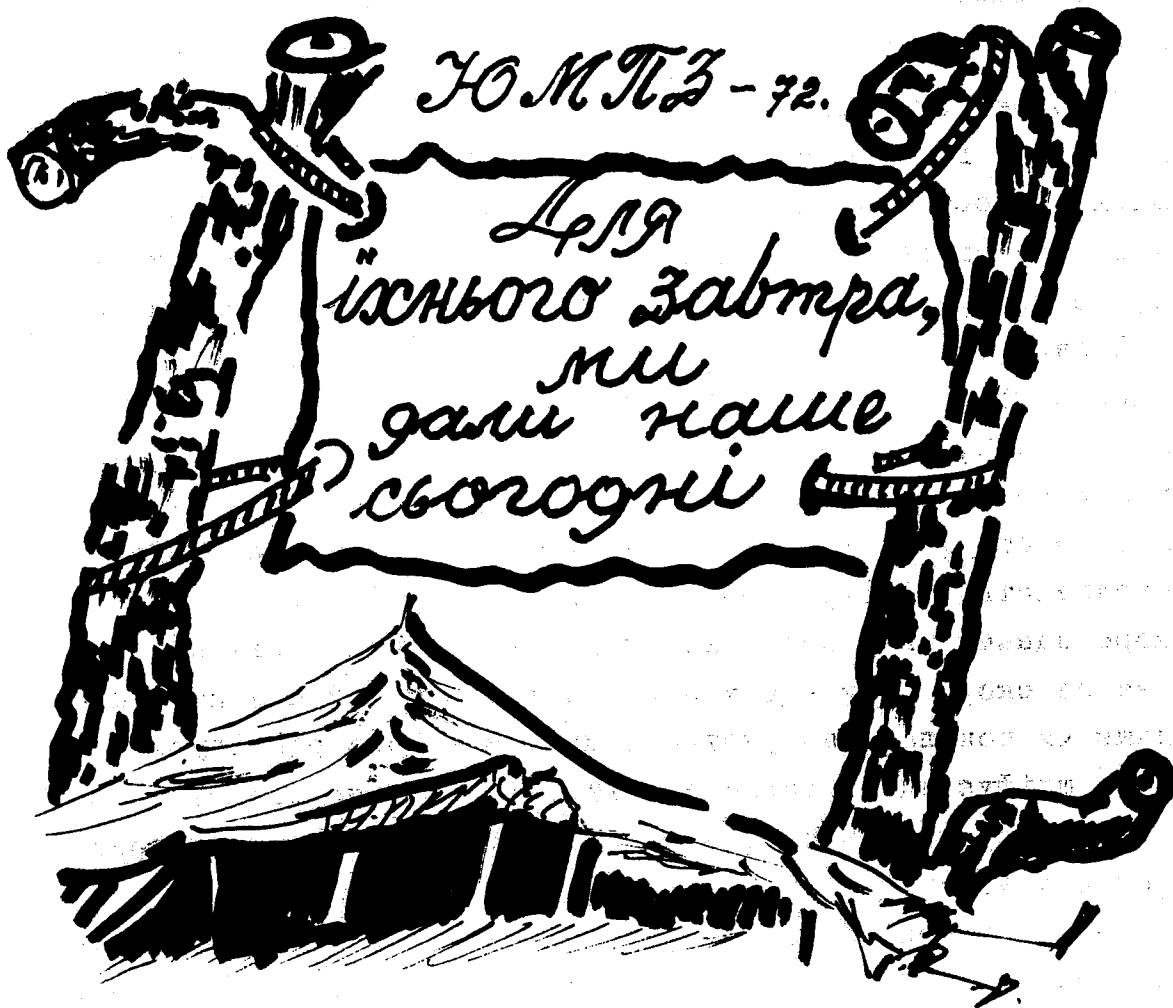 ЮМПЗ - 72.
Для
їхнього завтра,
ми
дали наше
сьогодні